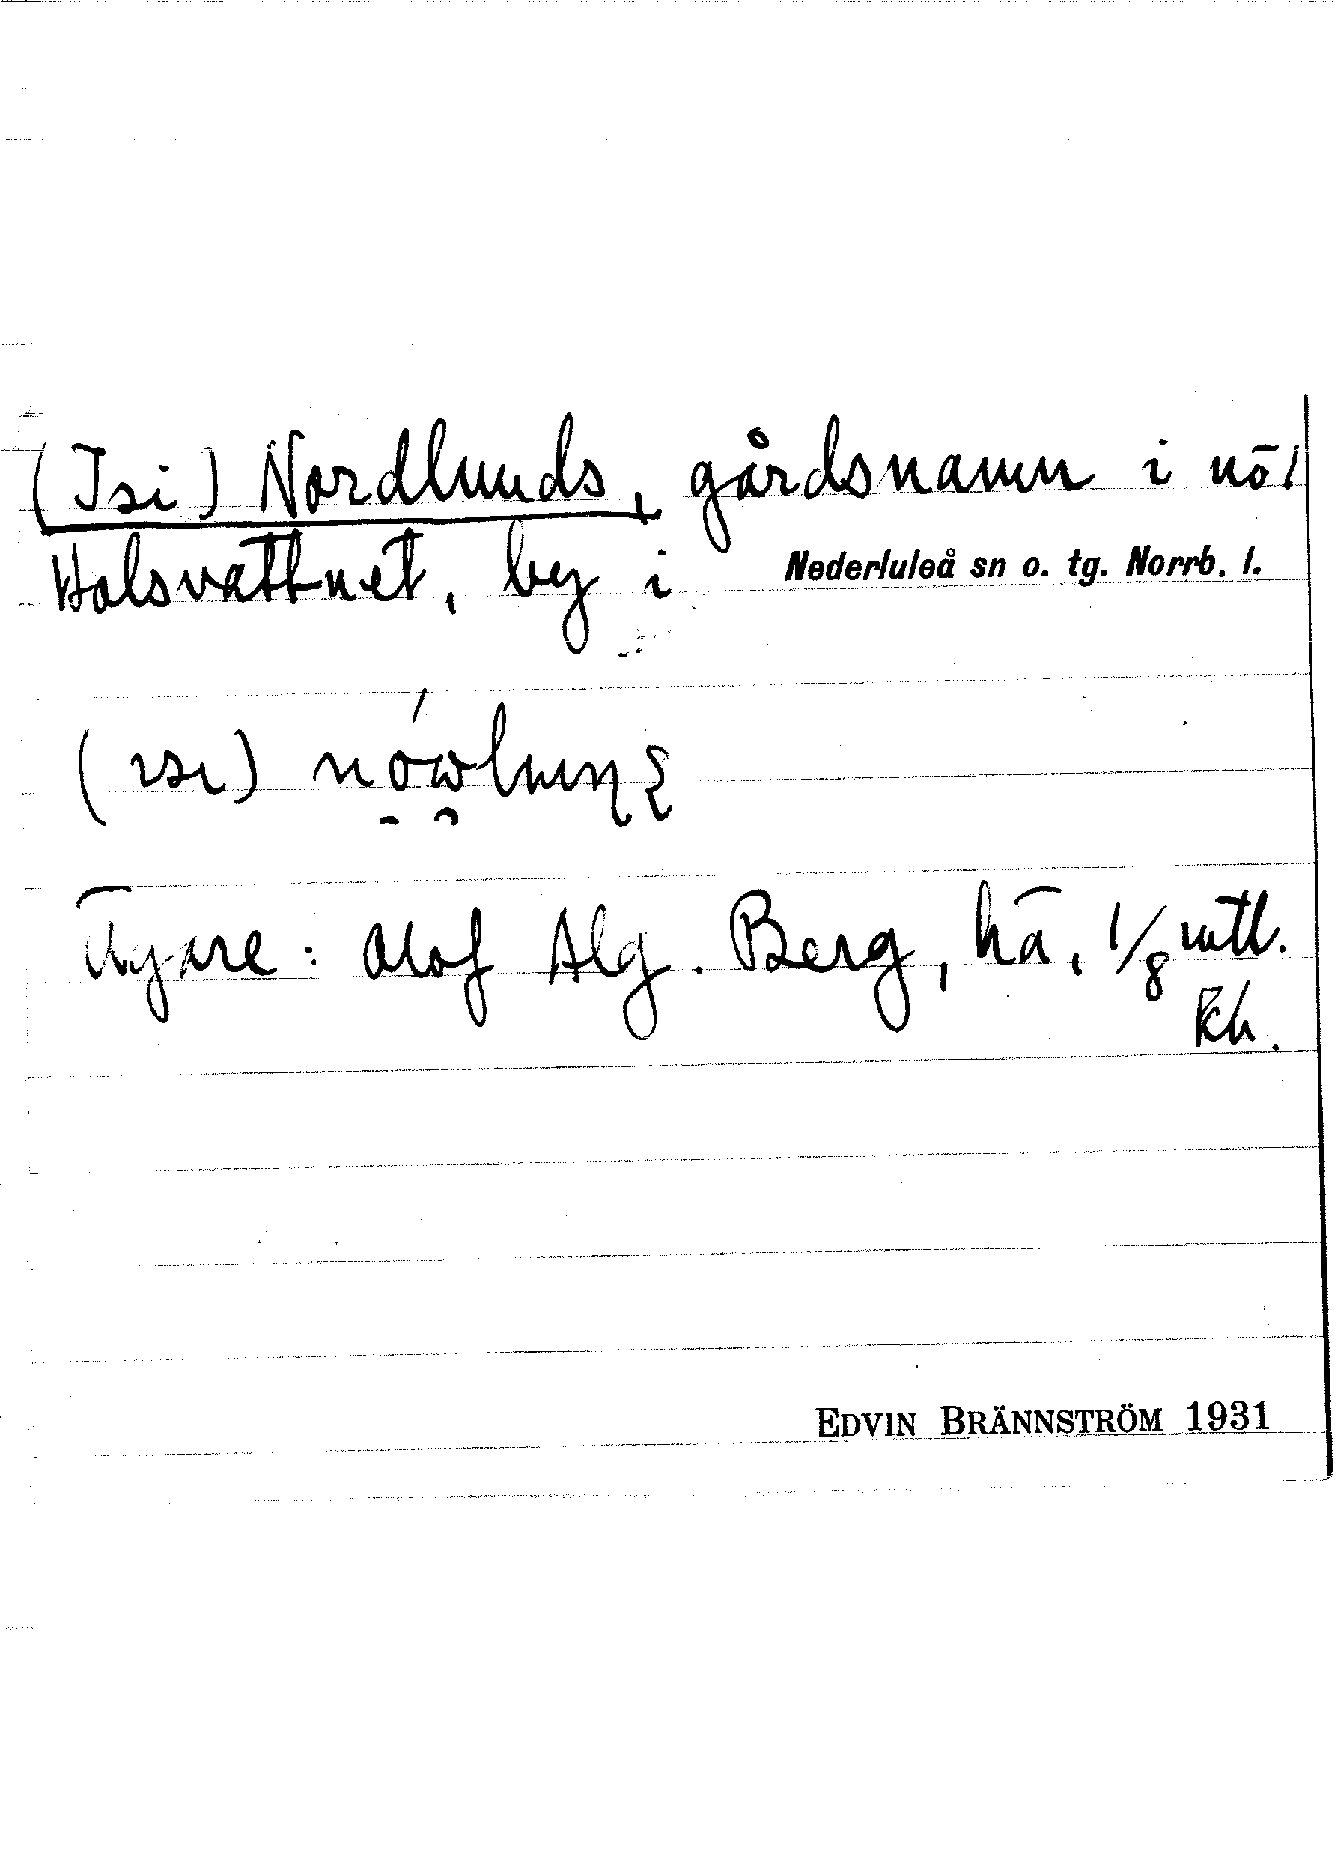 (Isi) Nordlunds, gårdsnamn i nö/
Holsvattnet, by i Nederluleå sn o. tg. Norrb. l.
(ısı)
Ägare: Olof Alg. Berg, hä, 1/8 mtl.
Kh.
EDVIN BRÄNNSTRÖM 1931